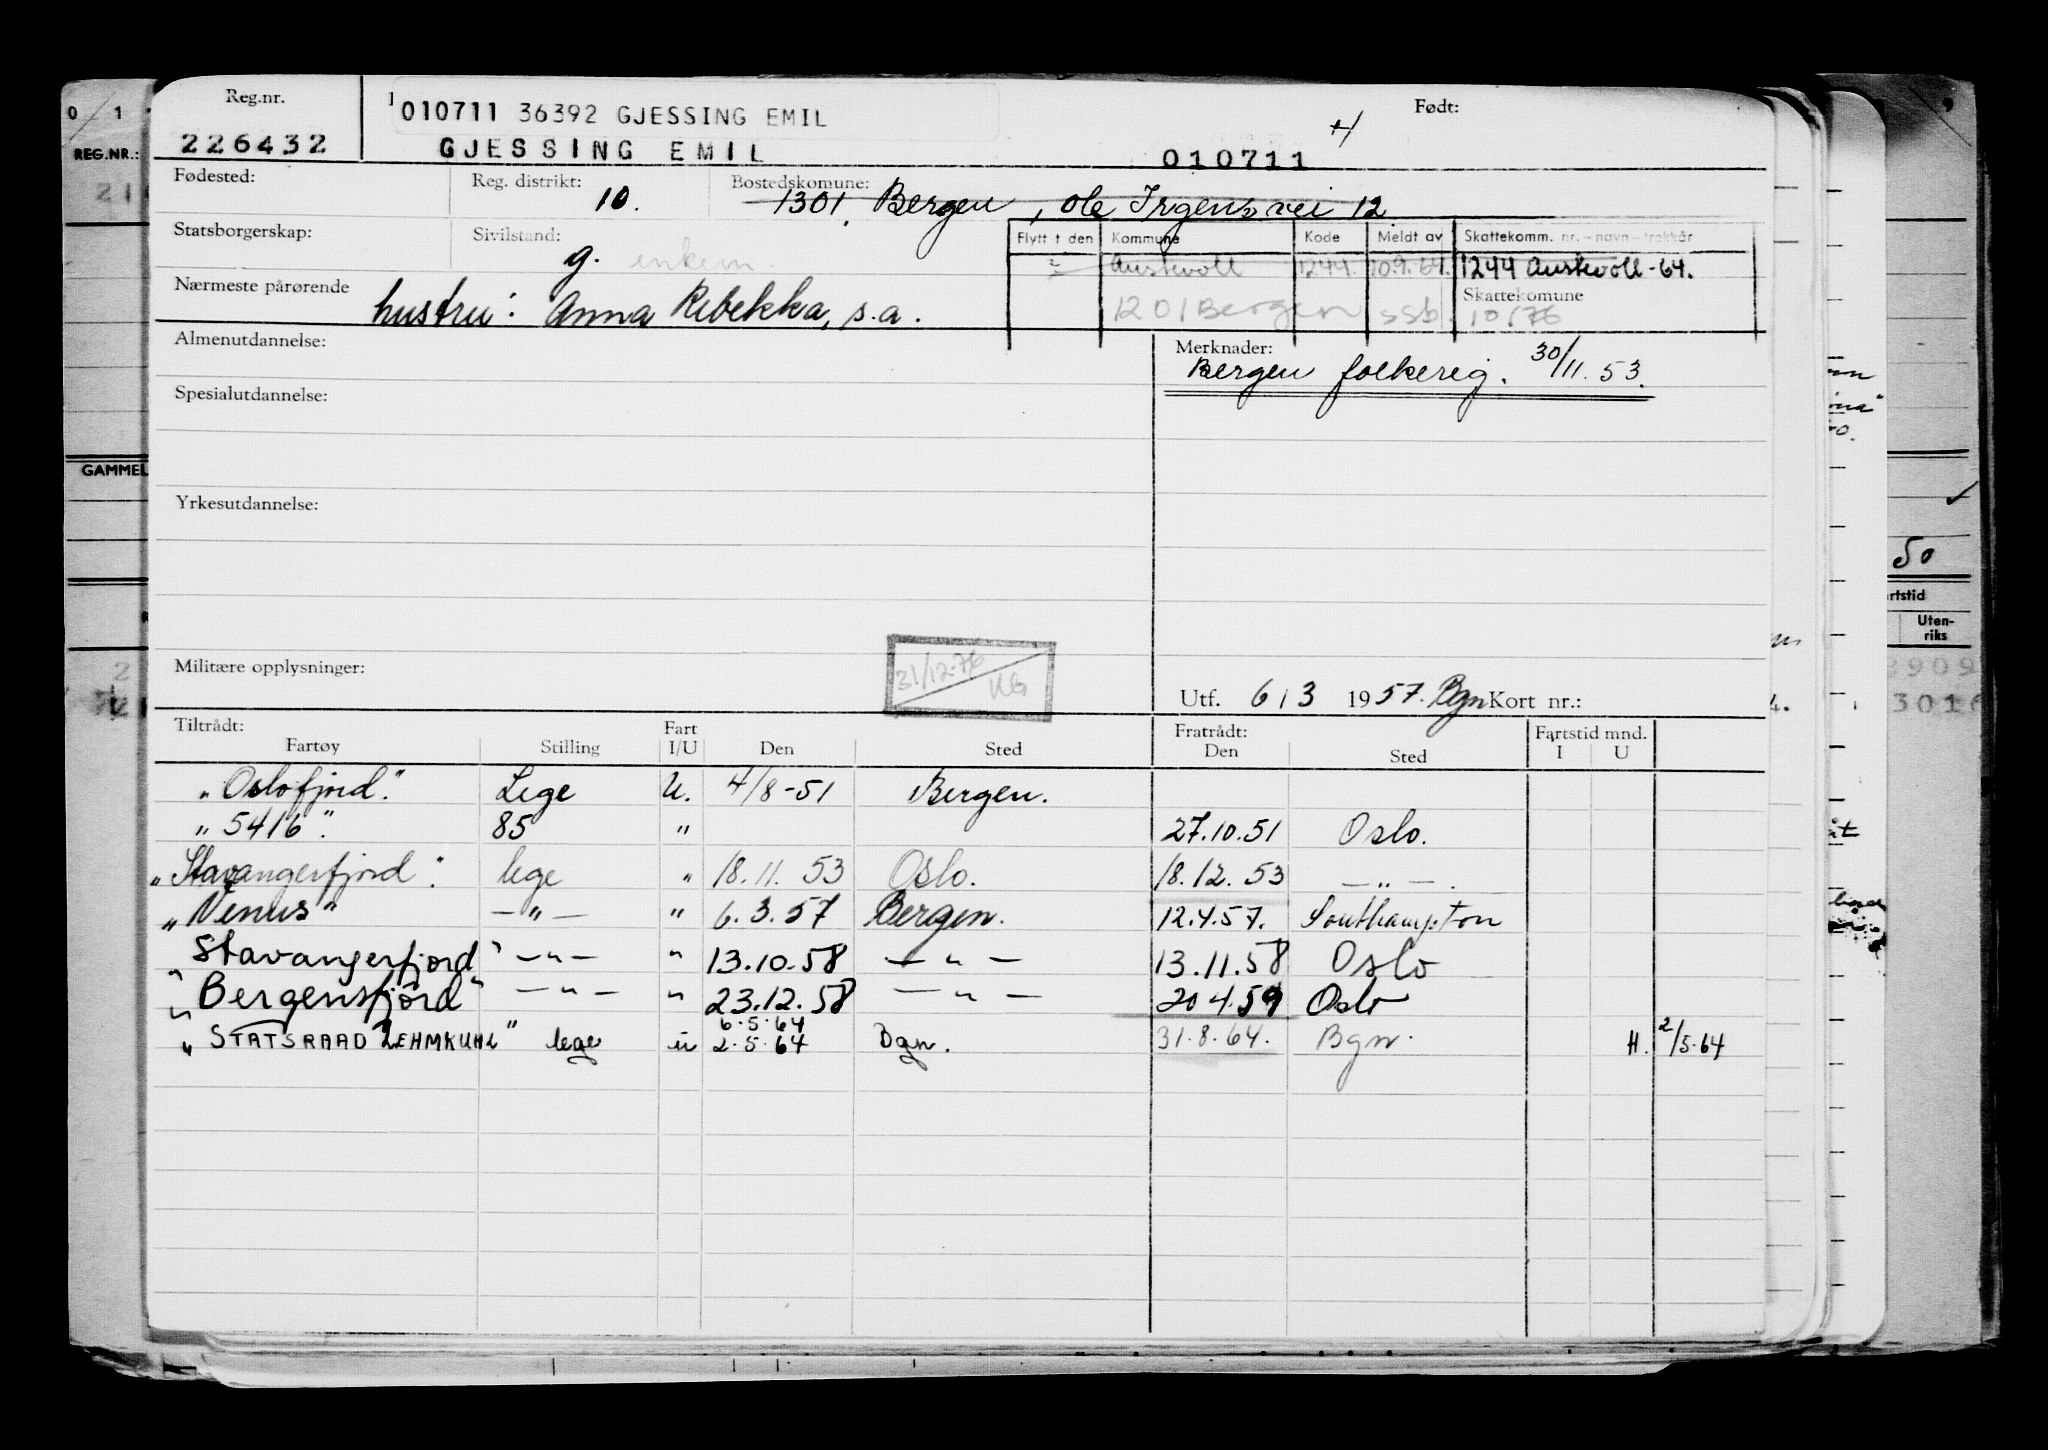 Reg.nr.
226432
010711 36392 GJESSING EMIL
GJESSING EMIL
010711
Født:
Fødested:
Reg. distrikt: 10.
Bostedskomune: 1301 Bergen, Ole Irgens vei 12
Statsborgerskap:
Sivilstand: g. enkem.
Flytt t den Kommune Kode Meldt av Skattekomm. nr. - navn - trekkår
Austevoll 1244. 10.9.64. 1244 Austevoll -64.
Nærmeste pårørende
hustru: Anna Rebekka, s.a.
Skattekomune
1201 Bergen ssb 10/76
Almenutdannelse:
Merknader:
Bergen folkereg. 30/11.53.
Spesialutdannelse:
Yrkesutdannelse:
Militære opplysninger:
31/12-76
Utf. 6/3 1957. Bgn Kort nr.:
Tiltrådt: Fartøy Stilling Fart I/U Den Sted Fratrådt: Den Sted Fartstid mnd. I U
"Oslofjord". Lege U. 4/8-51 Bergen.
"5416". 85 " 27.10.51 Oslo.
"Stavangerfjord". lege " 18.11.53 Oslo. 18.12.53 — " — .
"Venus" — " — " 6.3.57 Bergen. 12.4.57. Southampton
Stavangerfjord" — " — " 13.10.58 — " — 13.11.58 Oslo
"Bergensfjord" — " — " 23.12.58 — " — 20.4.59 Oslo
6.5.64
"STATSRAAD LEHMKUHL" lege u 2.5.64 Bgn. 31.8.64. Bgn. H. 2/5.64
REG.NR.:
GAMMEL
50
Uten-
riks